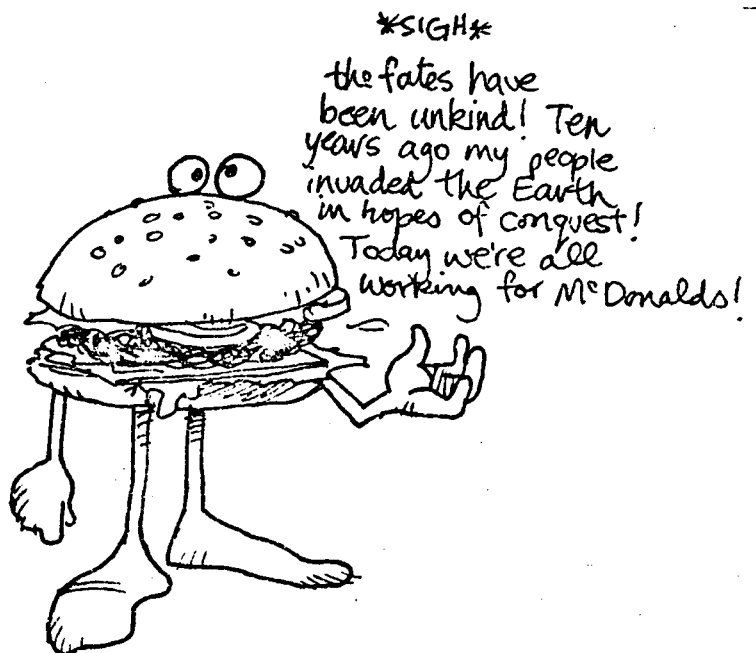 *SIGH*
the fates have
been unkind! Ten
years ago my people
invaded the Earth
in hopes of conquest!
Today we're all
working for McDonalds!